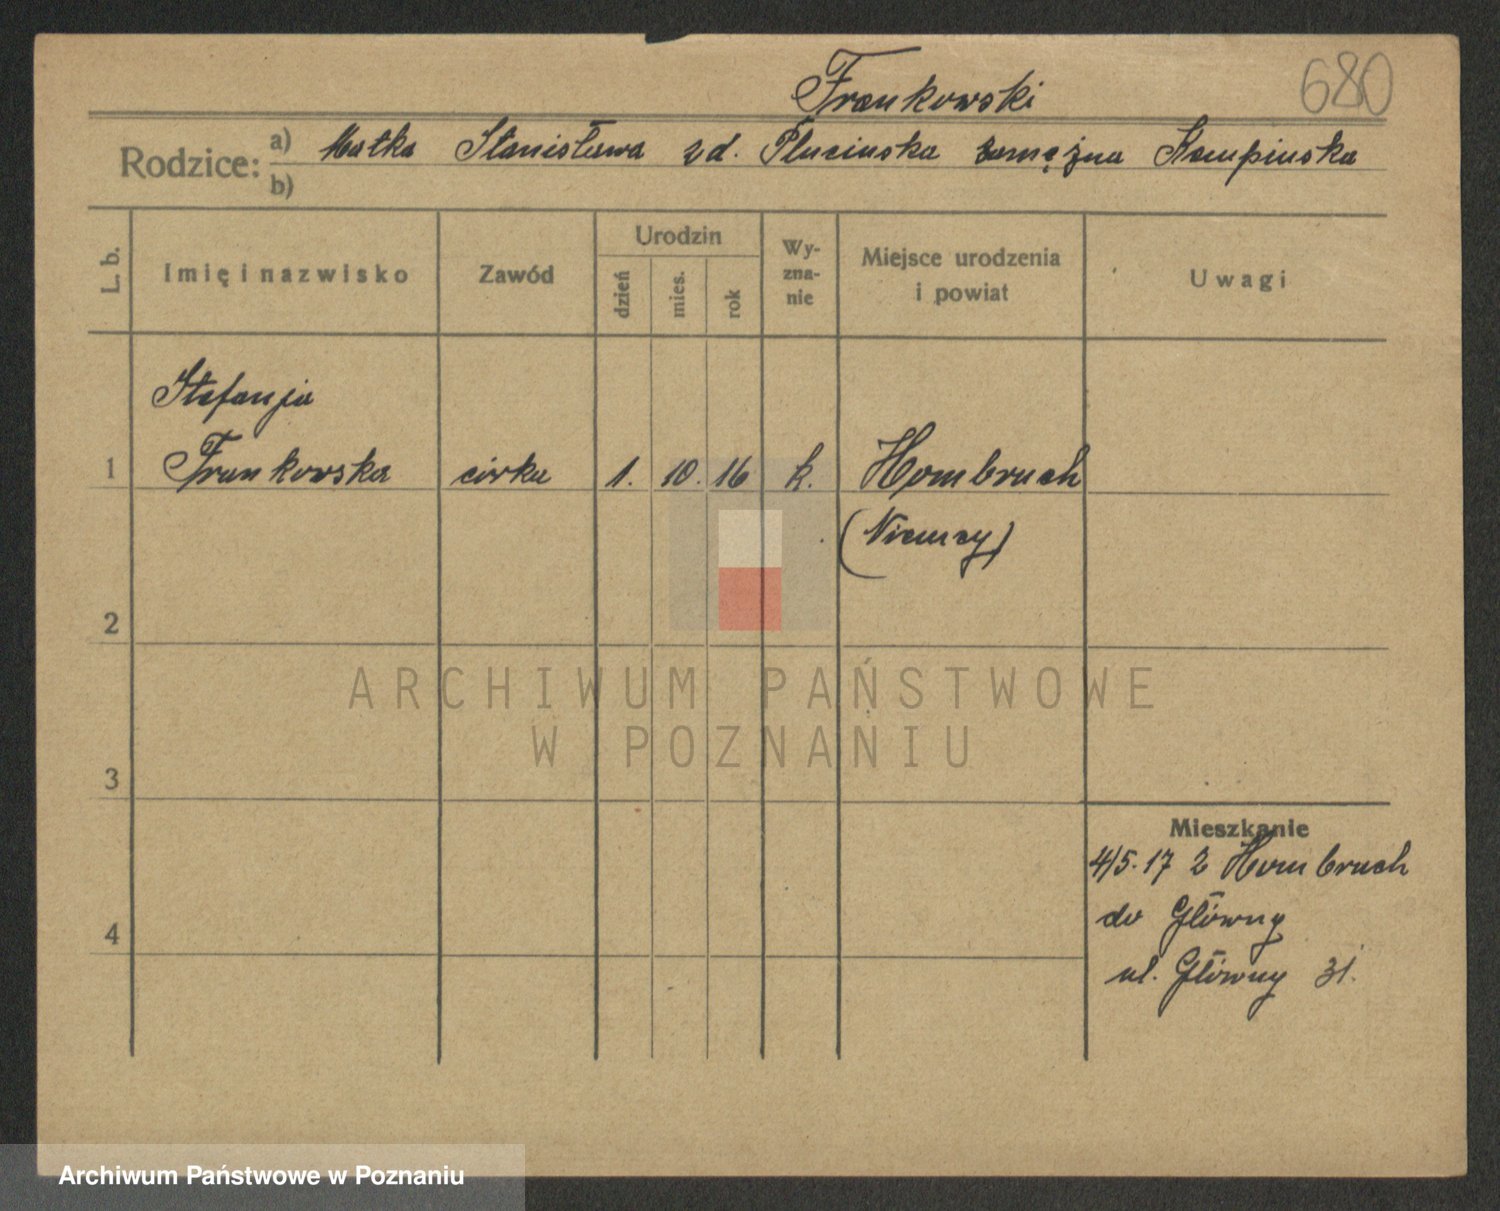 Frankowski
680
Rodzice: a) Matka Stanisława zd. Plucinska zamężna Kempinska
b)
L. b.
Imię i nazwisko
Zawód
Urodzin
dzień
mies.
rok
Wy-
zna-
nie
Miejsce urodzenia
i powiat
Uwagi
Stefanja
1 Frankowska córka 1. 10. 16 k. Hombruch
(Niemcy)
2
3
4
ARCHIWUM PAŃSTWOWE
W POZNANIU
Mieszkanie
4/5.17 z Hombruch
do Główny
ul. Główny 31.
Archiwum Państwowe w Poznaniu